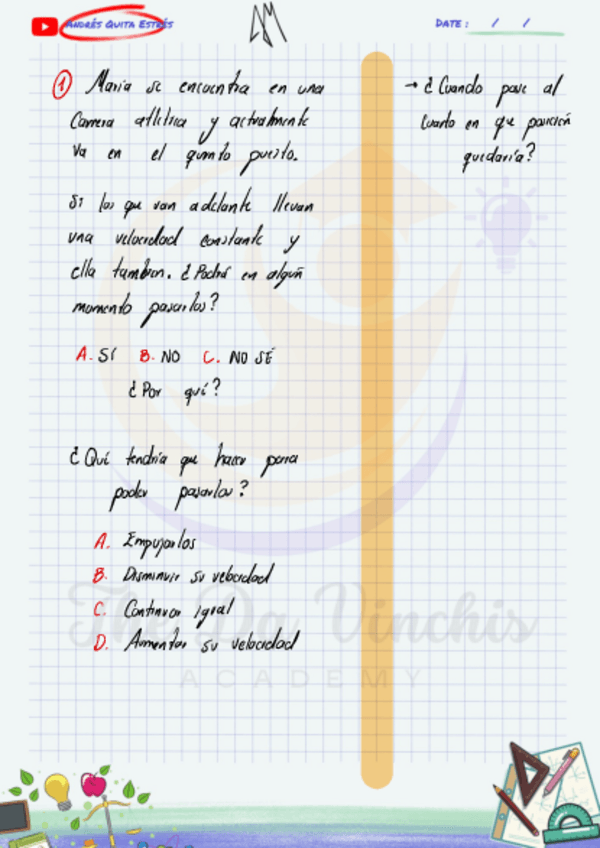 ANDRÉS QUITA ESTRÉS
DATE: / /
1 María se encuentra en una
Carrera atlética y actualmente
Va en el quinto puesto.
Si los que van adelante llevan
una velocidad constante y
ella tambien. ¿Podrá en algún
momento pasarlos?
A. SÍ B. NO C. NO SÉ
¿Por qué?
¿Qué tendría que hacer para
poder pasarlos?
A. Empujarlos
B. Disminuir su velocidad
C. Continuar igual
D. Aumentar su velocidad
→ ¿Cuando pase al
Cuarto en que posición
quedaría?
The Da Vinchis
ACADEMY